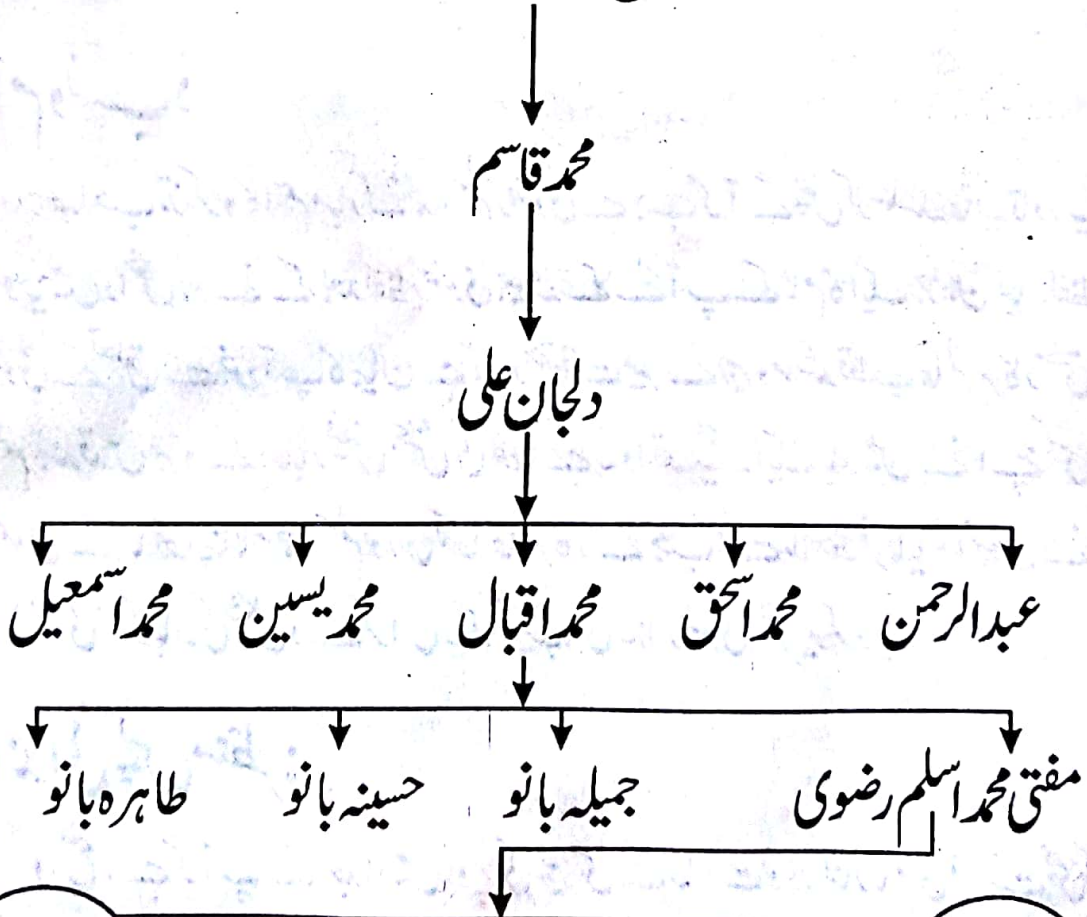 محمد قاسم
دلجان علی
عبدالرحمن محمد اسحٰق محمد اقبال محمد یسین محمد اسمعیل
مفتی محمد اسلم رضوی جمیلہ بانو حسینہ بانو طاہرہ بانو